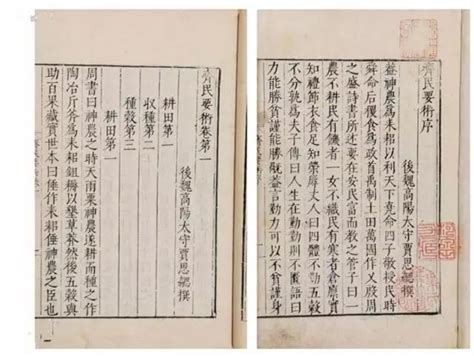 齊民要術序
後魏高陽太守賈思勰撰
蓋神農爲耒耜以利天下堯命四子敬授民時
舜命后稷食爲政首禹制土田萬國作乂殷周
之盛詩書所述要在安民富而教之管子曰一
農不耕民有饑者一女不織民有寒者倉廩實
知禮節衣食足知榮辱丈人曰四體不勤五穀
不分孰爲夫子傳曰人生在勤勤則不匱語曰
力能勝貧謹能勝禍蓋言勤力可以不貧謹身
齊民要術卷第一
後魏高陽太守賈思勰撰
耕田第一
收種第二
種穀第三
耕田第一
周書曰神農之時天雨粟神農遂耕而種之作
陶冶斤斧爲耒耜鋤耨以墾草莽然後五穀興
助百果藏實世本曰倕作耒耜倕神農之臣也